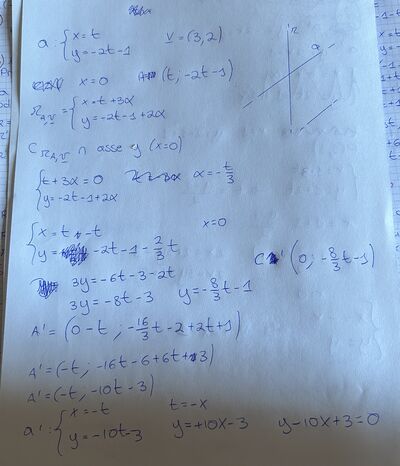 a: { x = t
y = -2t-1
v = (3,2)
x=0
A (t; -2t-1)
r
a
r_{A,v} = { x = t+3α
y = -2t-1+2α
C r_{A,v} ∩ asse y (x=0)
{ t+3α = 0
y = -2t-1+2α
α = -t/3
{ x = t - t
y = -2t-1 - 2/3 t
x=0
3y = -6t-3-2t
3y = -8t-3
y = -8/3 t - 1
C (0; -8/3 t - 1)
A' = (0-t; -16/3 t - 2 + 2t + 1)
A' = (-t; -16t - 6 + 6t + 3)
A' = (-t; -10t-3)
a': { x = -t
y = -10t-3
t = -x
y = +10x-3
y-10x+3=0